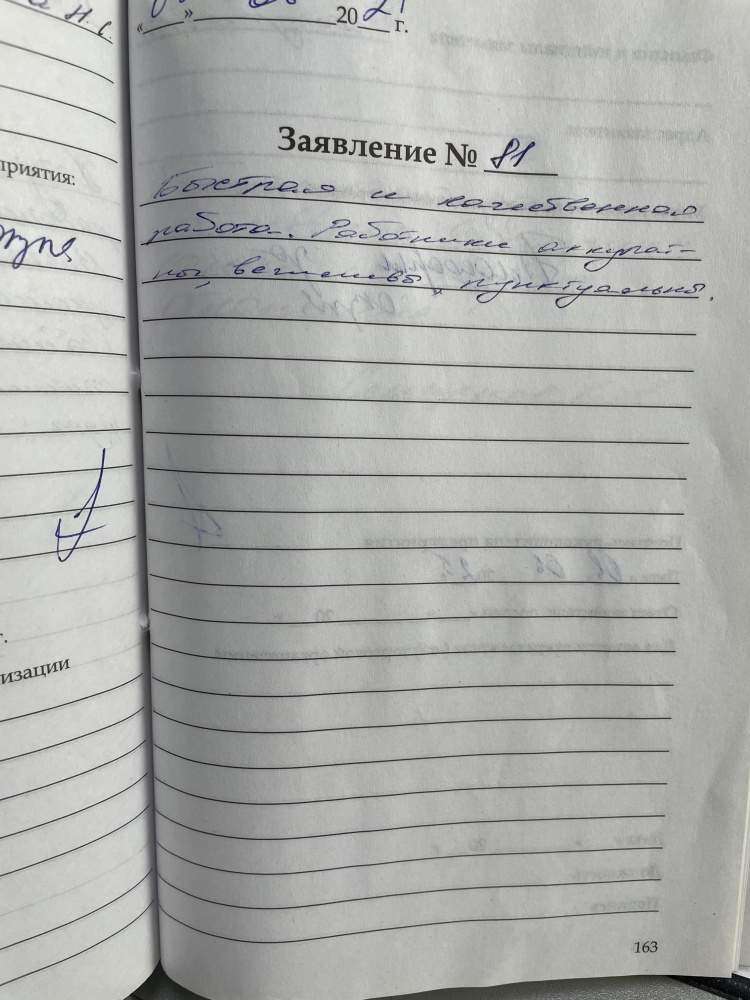 а н.с.
«___»______________20 21 г.
Заявление № 81
Быстрая и качественная
приятия:
работа. Работники аккурат-
ны, вежливы, пунктуальны.
г.
изации
163